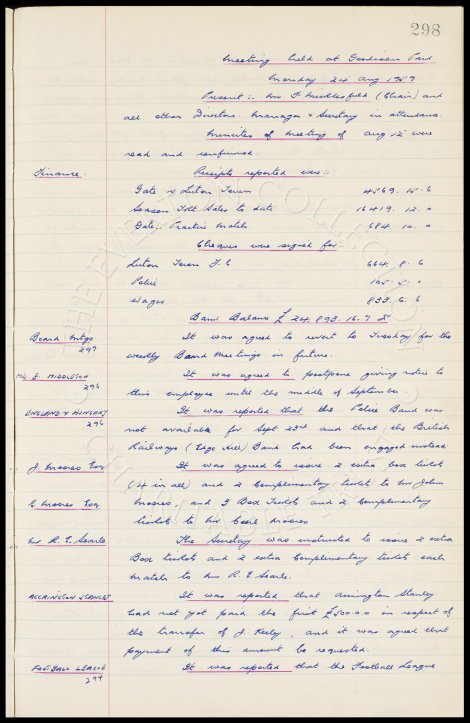 298
Meeting held at Goodison Park
Monday 24 Aug 1959
Present:- Mr F. Micklesfield (Chair) and
all other Directors. Manager & Secretary in attendance.
Minutes of Meeting of Aug 12 were
read and confirmed.
Finance. Receipts reported were:-
Gate v Luton Town 4569. 15. 6
Season Tckt Sales to date 16419. 12. 0
Gate:- Practice Match 684. 10. 0
Cheques were signed for:-
Luton Town F.C 664. 8. 6
Police
Wages 833. 6. 6
Bank Balance £ 24.893. 16. 7
Board Mtgs 297 It was agreed to revert to Tuesday for the
weekly Board Meetings in future.
E. MIDDLETON 296 It was agreed to postpone giving notice to
this employee until the middle of September.
ENGLAND v HUNGARY 296 It was reported that the Police Band was
not available for Sept 23rd and that the British
Railways (Edge Hill) Band had been engaged instead
J. Moores Esq It was agreed to issue 2 extra box tickets
(4 in all) and 2 Complimentary tickets to Mr John
C. Moores Esq Moores, and 3 Box Tickets and 2 Complimentary
tickets to Mr Cecil Moores
Mr R. E. Searle The Secretary was instructed to issue 2 extra
Box tickets and 2 extra Complimentary tickets each
match to Mr R. E. Searle.
ACCRINGTON STANLEY It was reported that Accrington Stanley
had not yet paid the first £500.0.0 in respect of
the transfer of J. Keeley, and it was agreed that
payment of this amount be requested.
FOOTBALL LEAGUE 294 It was reported that the Football League
THE EVERTON COLLECTION